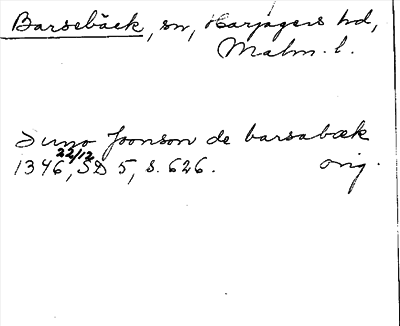 Barsebäck, sn, Harjagers hd,
Malm. l.
Suno Joonson de barsabæk
1346 22/12, SD 5, s. 626. orig.